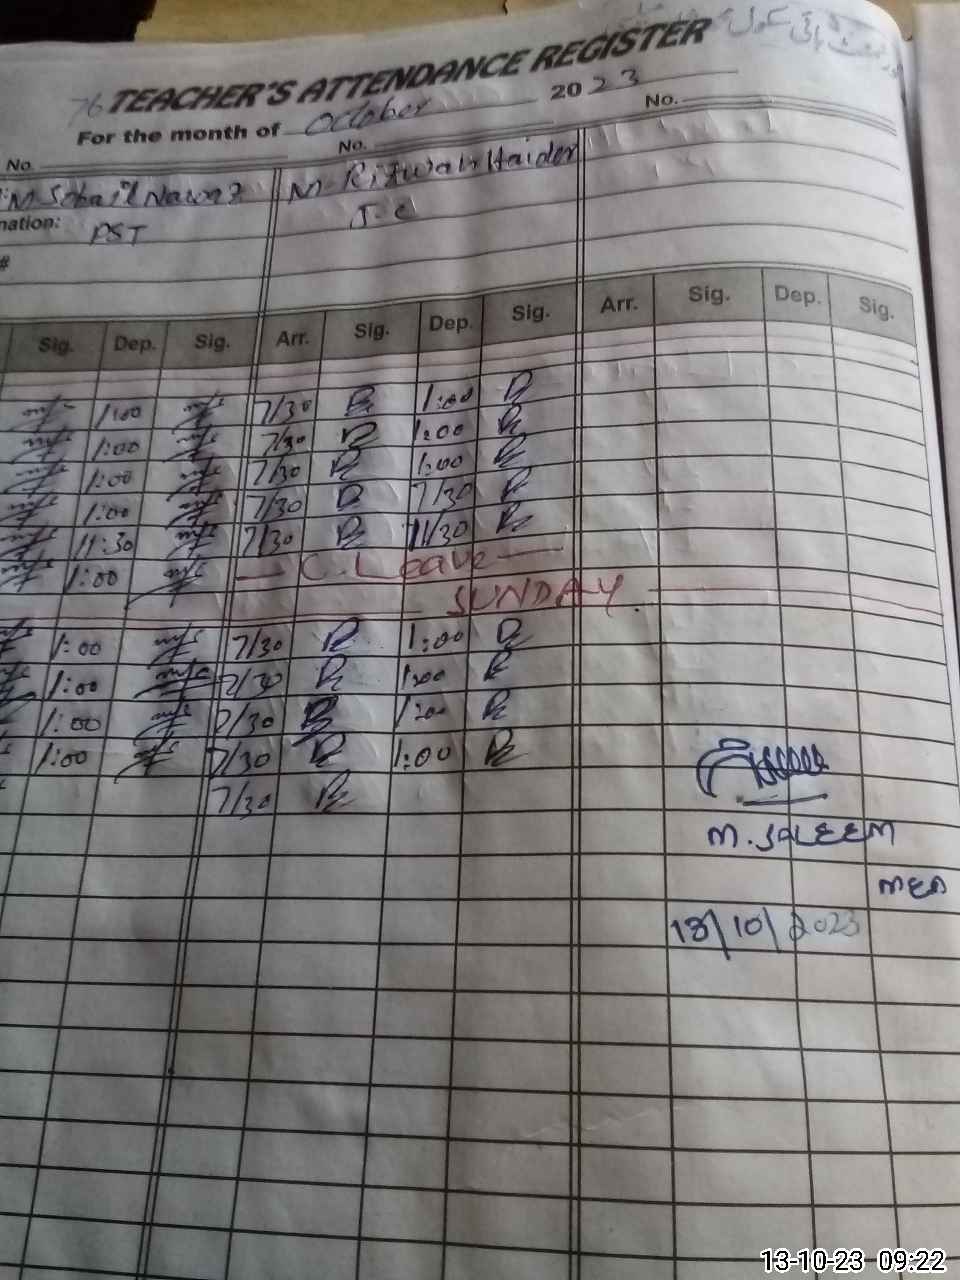 76 TEACHER'S ATTENDANCE REGISTER
For the month of October 2023
No. No. No.
M. Sohail Nawaz M. Rizwan Haider
nation: PST J.C
#
Sig. Dep. Sig. Arr. Sig. Dep. Sig. Arr. Sig. Dep. Sig.
1:00 7/30 1:00
1:00 7/30 1:00
1:00 7/30 1:00
1:00 7/30 7/30
11:30 7/30 11/30
1:00 C. Leave
SUNDAY
1:00 7/30 1:00
1:00 7/30 1:00
1:00 7/30 1:00
1:00 7/30 1:00
7/30
M. SALEEM
MEA
13/10/2023
13-10-23 09:22